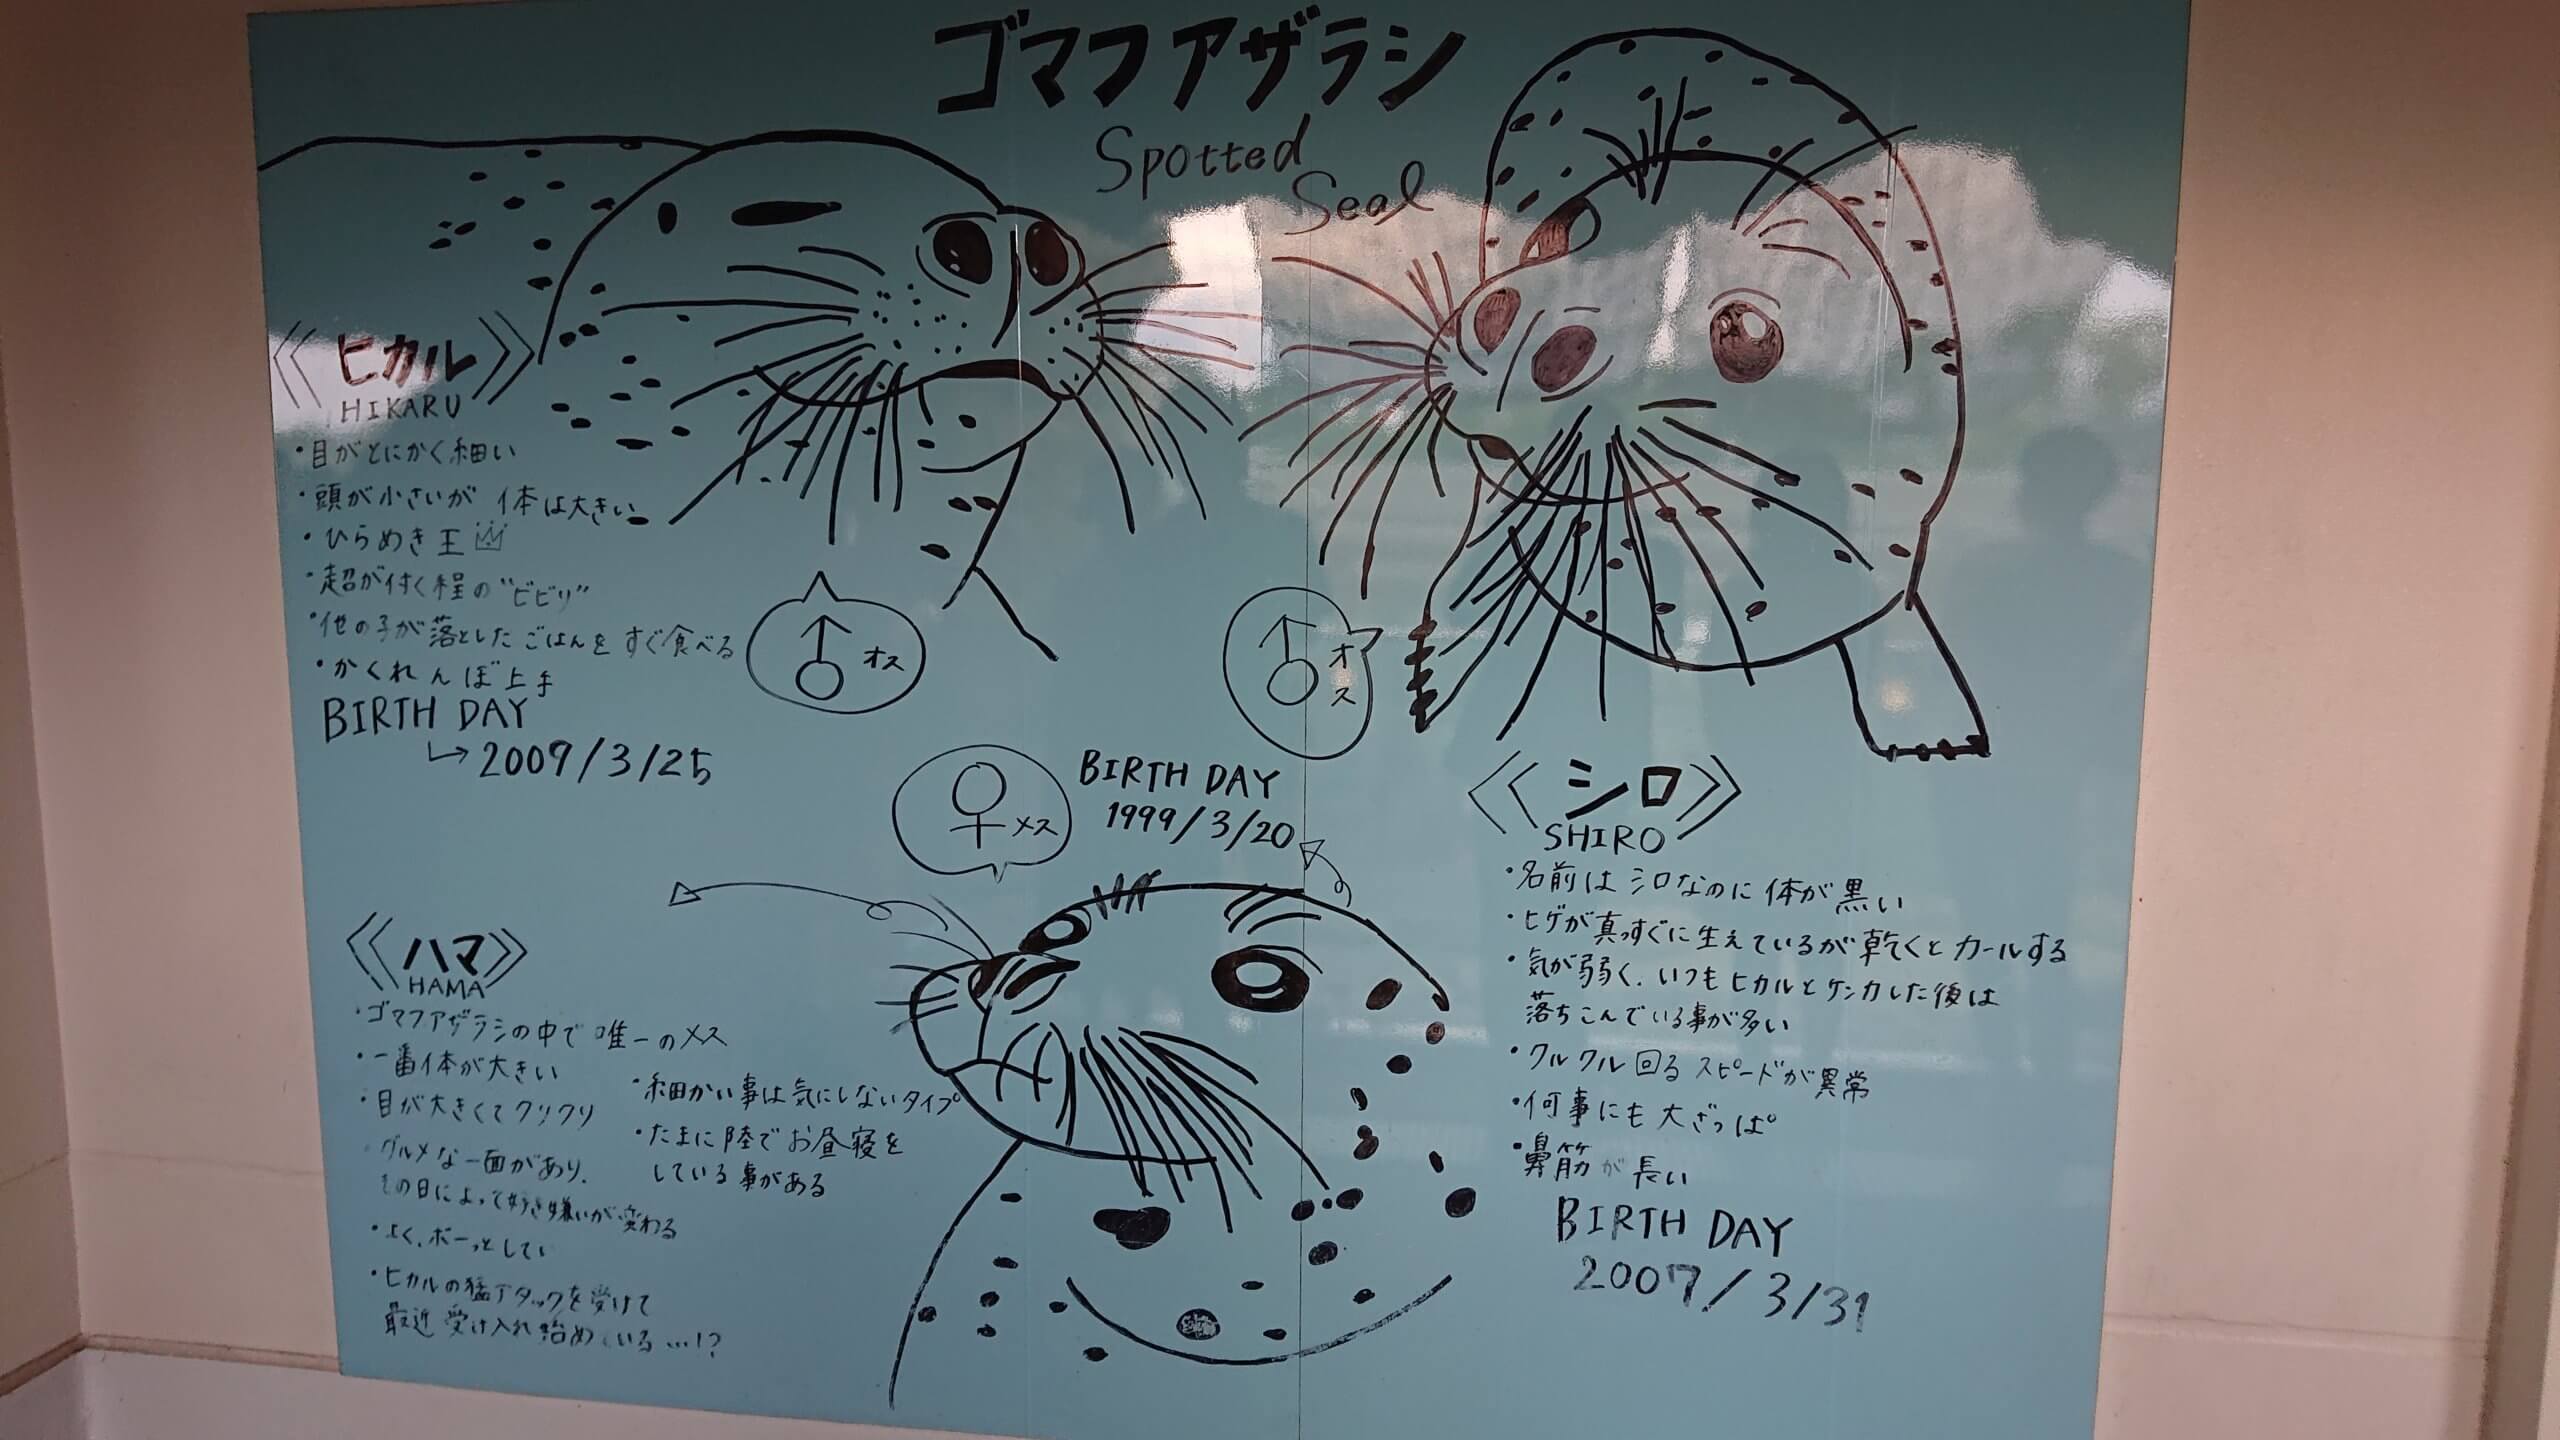 ゴマフアザラシ
Spotted
Seal
《ヒカル》
HIKARU
・目がとにかく細い
・頭が小さいが 体は大きい
・ひらめき王
・超が付く程の"ビビリ"
・他の子が落としたごはんを すぐ食べる
・かくれんぼ上手
BIRTH DAY
→2009/3/25
♂オス
♂オス
《シロ》
SHIRO
・名前はシロなのに体が黒い
・ヒゲが真っすぐに生えているが乾くとカールする
・気が弱く、いつもヒカルとケンカした後は
落ちこんでいる事が多い
・クルクル回るスピードが異常
・何事にも大ざっぱ
・鼻筋が長い
BIRTH DAY
2007/3/31
♀メス
BIRTH DAY
1999/3/20
《ハマ》
HAMA
・ゴマフアザラシの中で唯一のメス
・一番体が大きい
・目が大きくてクリクリ
グルメな一面があり、
その日によって好き嫌いが変わる
・よく、ボーっとしてい
・ヒカルの猛アタックを受けて
最近受け入れ始めている…!?
・細かい事は気にしないタイプ
・たまに陸でお昼寝を
している事がある